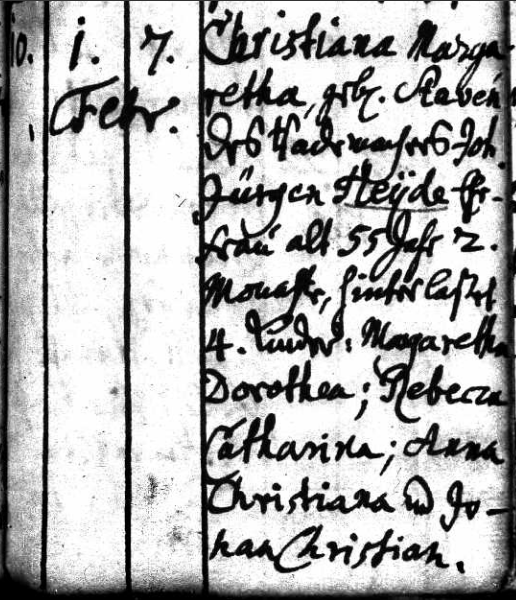 10. 1. 7. Christiana Marga-
Febr. retha, geb. Raven
des Rademachers Joh.
Jürgen Heÿde Ehe-
frau alt 55 Jahr 2.
Monathe, hinterlaßet
4. Kinder: Margaretha
Dorothea; Rebecca
Catharina; Anna
Christiana und Jo-
han Christian.